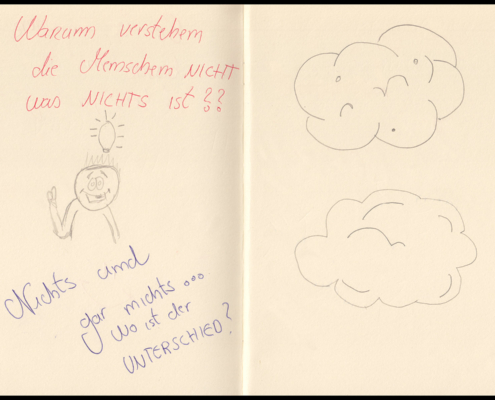 Warum verstehen
die Menschen NICHT
was NICHTS ist??
Nichts und
gar nichts...
Wo ist der
UNTERSCHIED?